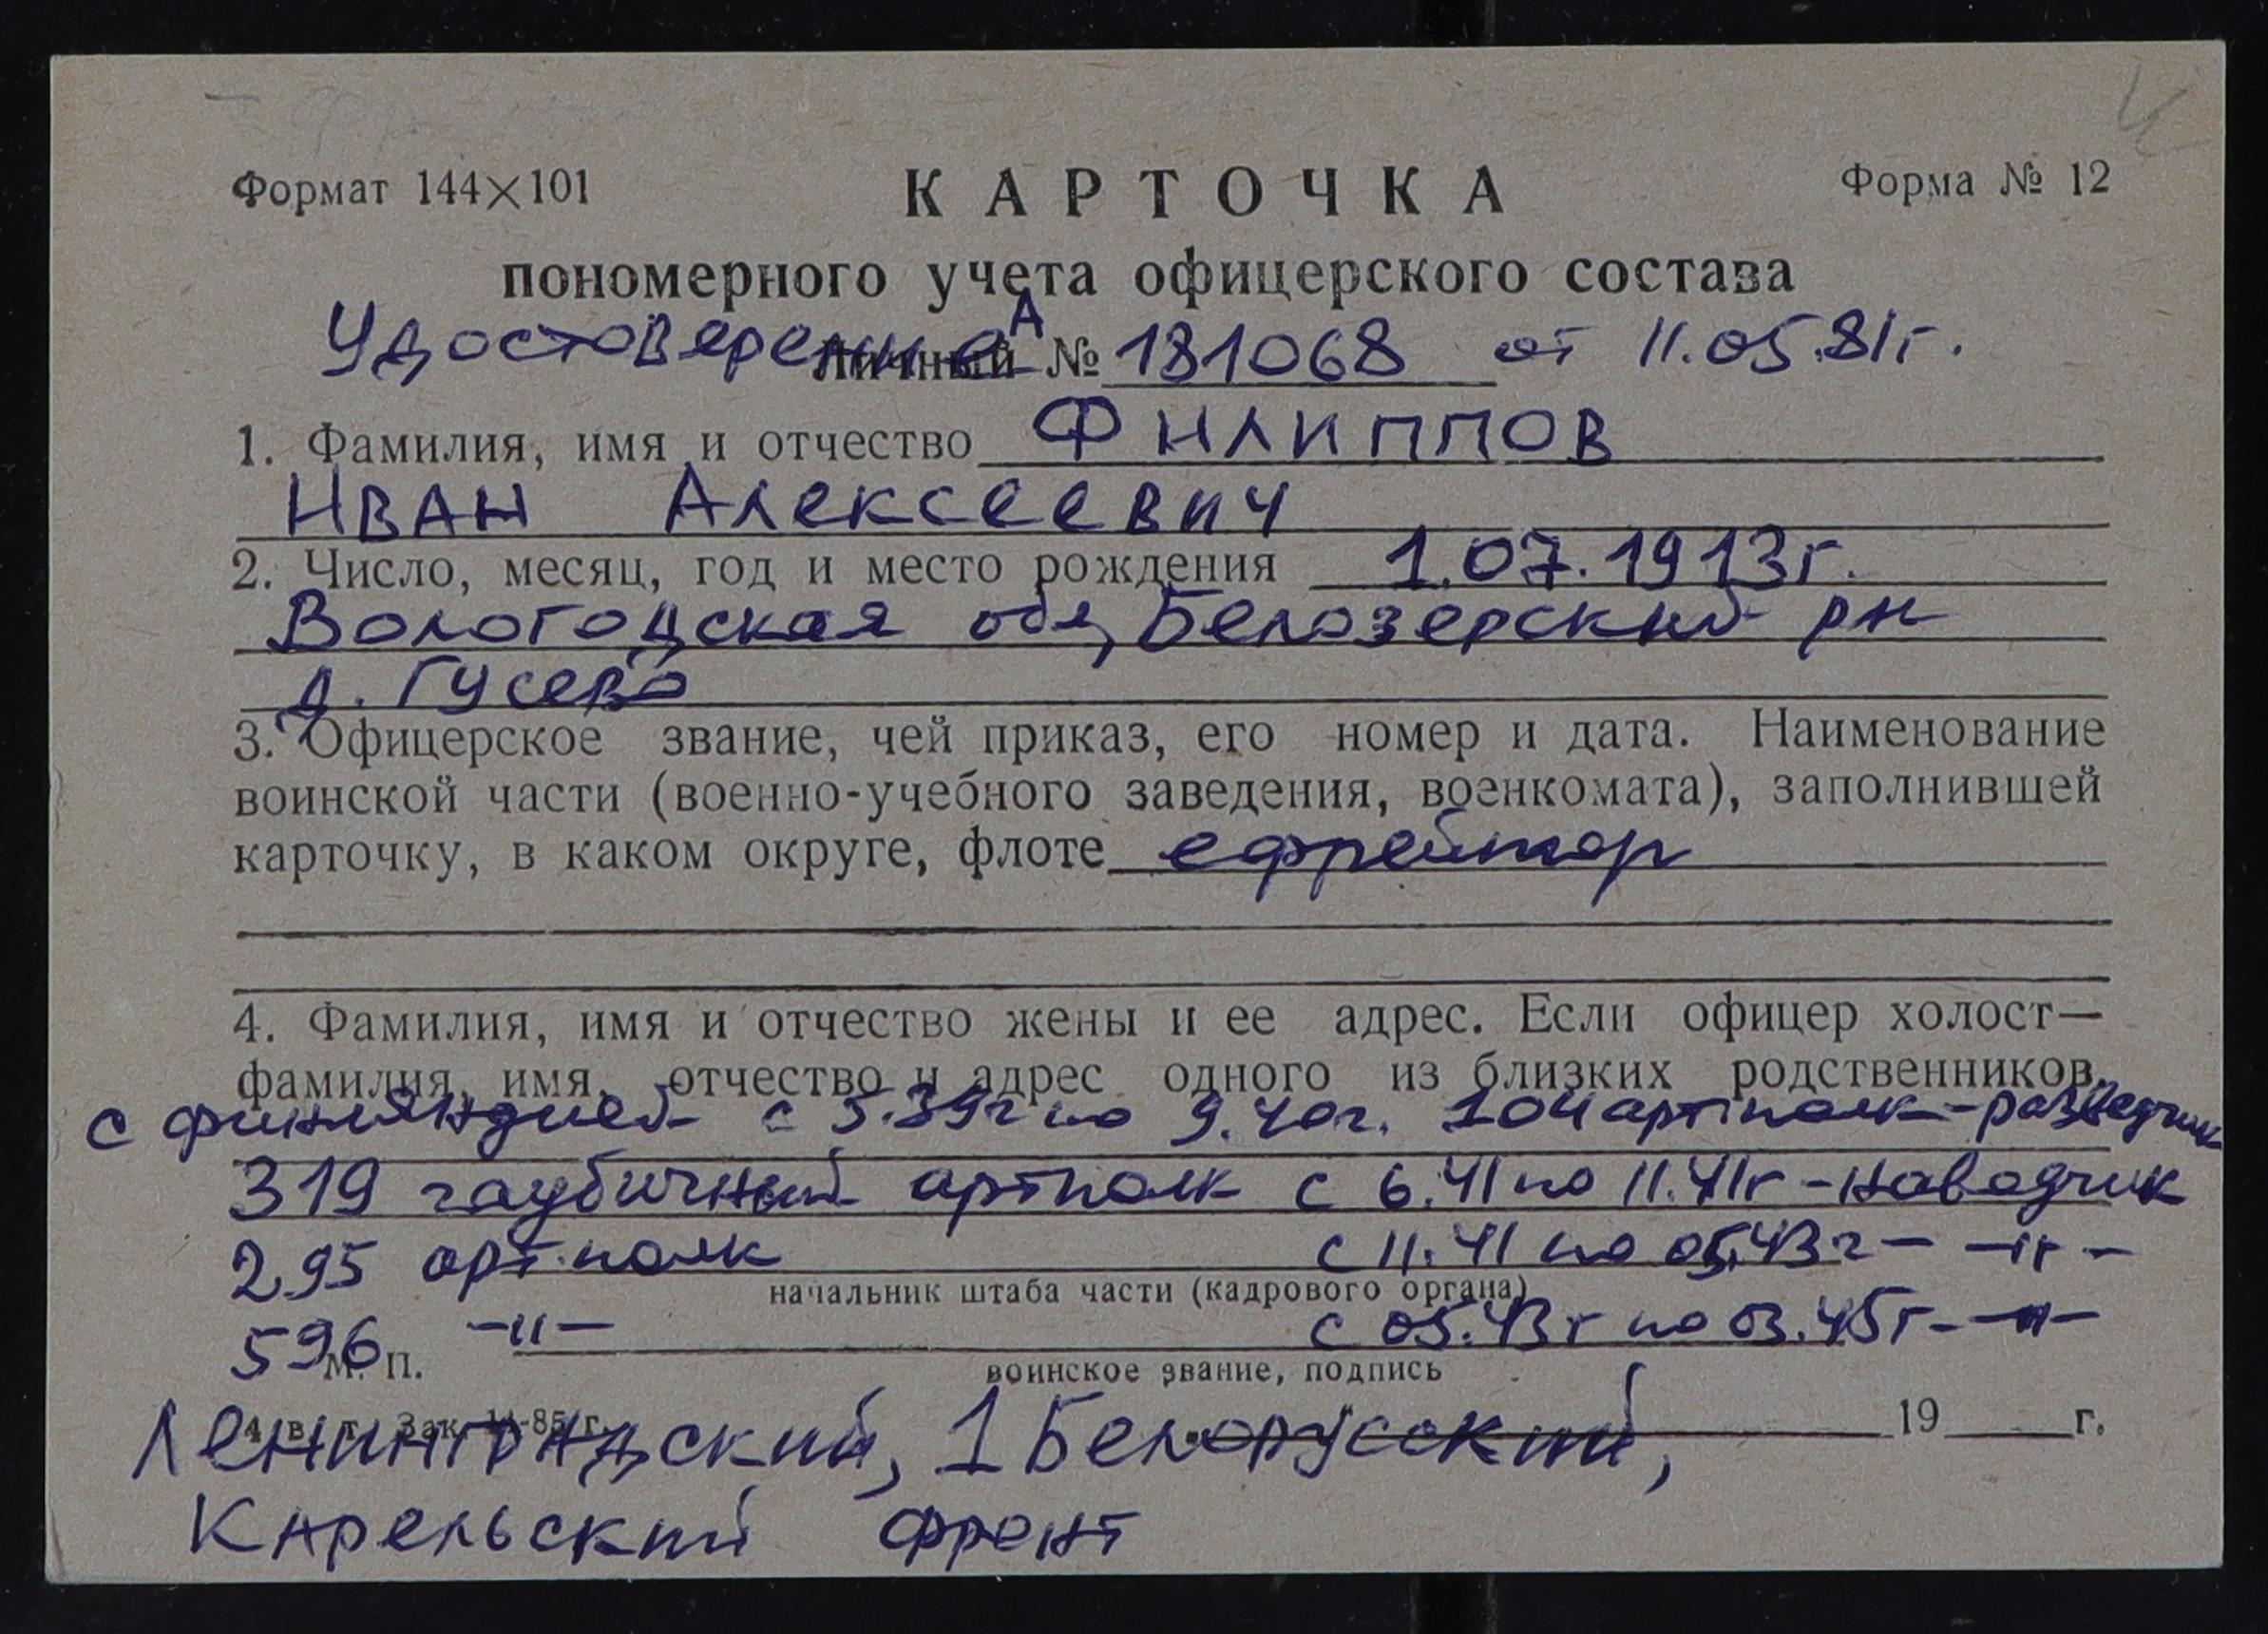 Формат 144×101 КАРТОЧКА Форма № 12
пономерного учета офицерского состава
Удостоверение А № 181068 от 11.05.81г.
Личный
1. Фамилия, имя и отчество ФИЛИППОВ
ИВАН Алексеевич
2. Число, месяц, год и место рождения 1.07.1913г.
Вологодская обл, Белозерский рн
д. Гусево
3. Офицерское звание, чей приказ, его номер и дата. Наименование
воинской части (военно-учебного заведения, военкомата), заполнившей
карточку, в каком округе, флоте ефрейтор
4. Фамилия, имя и отчество жены и ее адрес. Если офицер холост—
фамилия, имя, отчество и адрес одного из близких родственников.
с финляндией с 5.39г по 9.40г. 104 артполк - разведчик
319 гаубичный артполк с 6.41 по 11.41г - наводчик
295 арт.полк с 11.41 по 05.43г - -"-
начальник штаба части (кадрового органа)
596 -"- с 05.43г по 03.45г - -"-
М. П. воинское звание, подпись
4 в. т. Зак. 11-85 г. 19 г.
Ленинградский, 1 Белорусский,
Карельский фронт